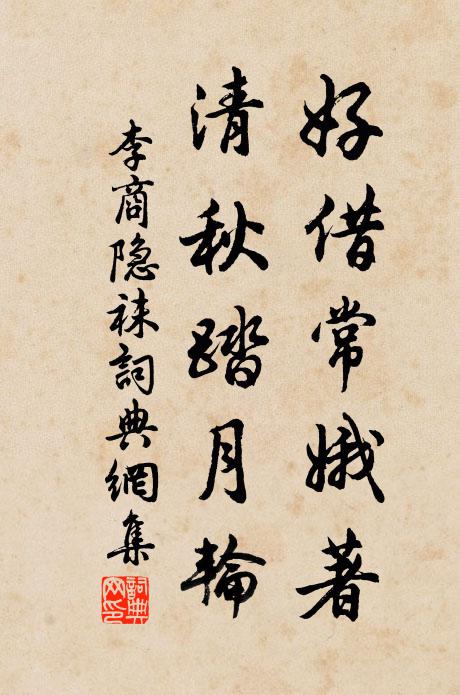 好借常娥著
清秋踏月輪
李商隐袜詞典網集
詞典